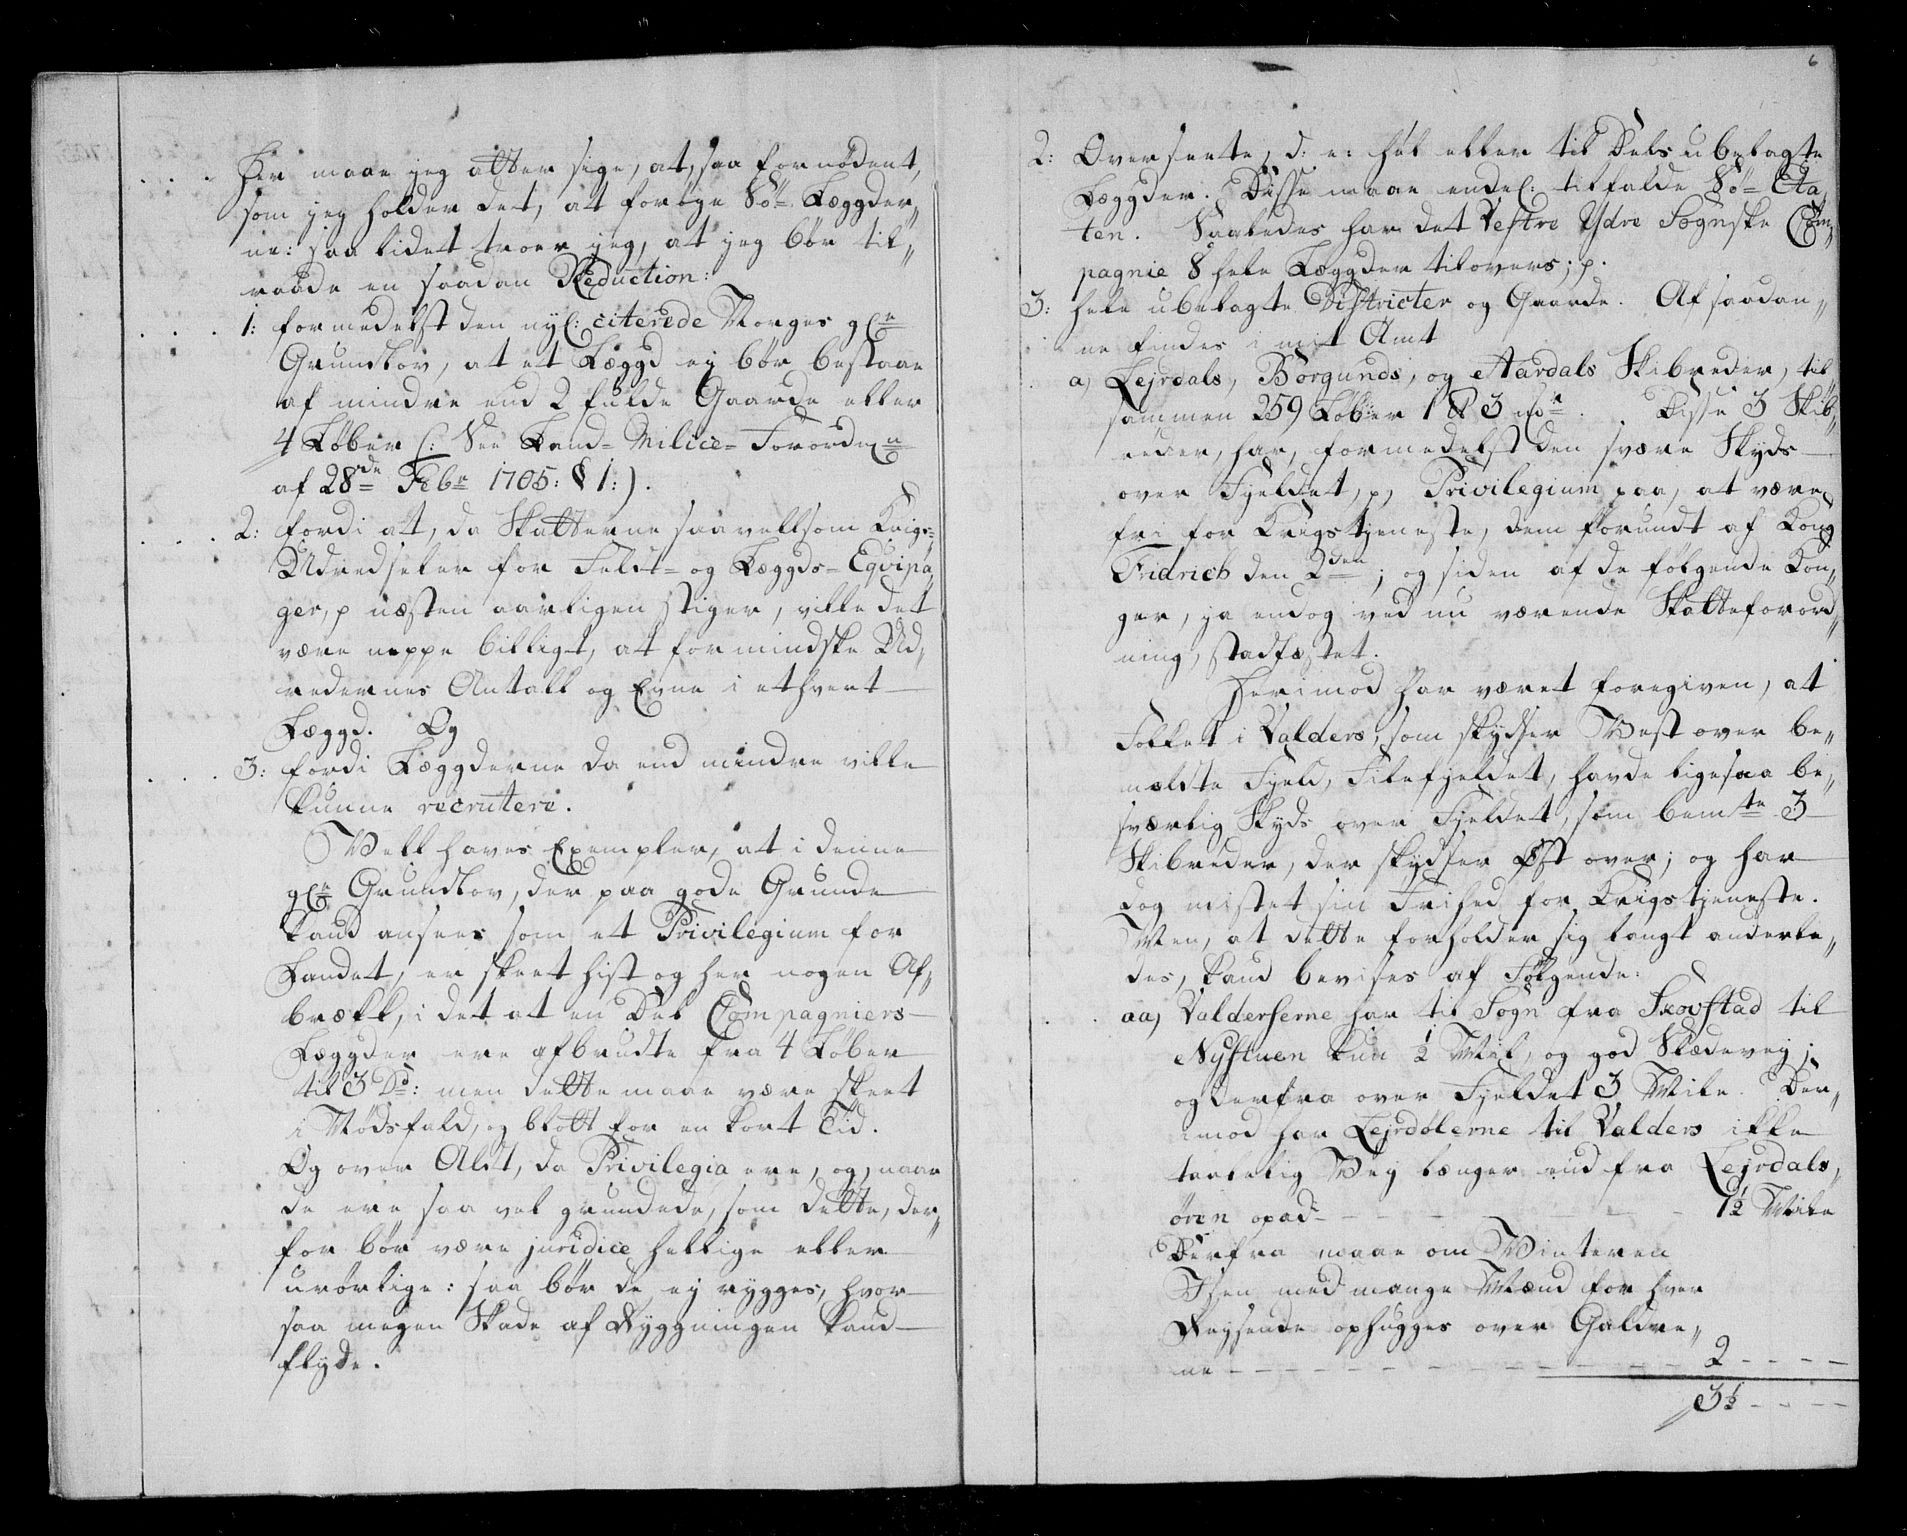 Her maae jeg atter sige, at, saa fornödent,
som jeg holder det, at foröge Sö- Læggder„
ne: saa lidet troer jeg, at jeg bör til„
raade en saadan Reduction:
1: formedelst den nyl: citerede Norges gle
Grundlov, at et Lægd ej bör bestaae
af mindre end 2 fulde Gaarde eller
4 Löber (: See Land- Milice- Forordn
af 28de Febr 1705: § 1:).
2: fordi at, da Skatterne saavelsom Krigs-
Udredseler for Feldt- og Læggds- Eqvipa„
ger, p næsten aarligen stiger, ville det
være neppe billigt, at formindske Ud„
redernes Antall og Evne i ethvert
Læggd. Og
3: fordi Læggderne da end mindre ville
kunne recrutere.
Vell haves Exempler, at i denne
gle Grundlov, der paa gode Grunde
kand ansees som et Privilegium for
Landet, er skeet hist og her nogen Af„
bræk, i det at en Del Compagniers
Læggder ere afbrudte fra 4 Löber
til 3 Do: men dette maae være skeet
i Nödsfald, og blott for en kort Tid.
Og over Alt, da Privilegia ere, og, naar
de ere saa vel grundede, som dette, der„
for bör være juridice hellige eller
urörlige: saa bör de ej rygges, hvor
saa megen Skade af Ryggningen kand
flyde.
6
2: Overseete, d: e: hel eller til Dels ubelagte
Læggder. Disse maae endel: tilfalde Sö- Eta„
ten. Saaledes har det Vestre Ydre Sognske Com„
pagnie 8 hele Læggder tilovers; p.
3: hele ubelagte Districter og Gaarde. Af saadan„
ne findes i mit Amt
a) Lejrdals, Borgunds, og Aardals Skibreder, til
sammen 259 Löber 1 3 Disse 3 Skib„
reder, har, formedelst den svære Skyds
over Fjeldet, p, Privilegium paa, at være
fri for Krigstjeneste, dem forundt af Kong
Fridrich den 2den; og siden af de fölgende Kon„
ger, ja endog ved nu værende Skatteforord„
ning, stadfæstet.
Herimod har været foregiven, at
Folket i Valders, som skydser Vest over be„
meldte Fjeld, Filefjeldet, havde ligesaa be„
sværlig Skyds over Fjeldet, som bemte 3
Skibreder, der skydser Øst over; og har
dog mistet sin Frihed for Krigstjeneste.
Men, at dette forholder sig langt anderle„
des, kand bevises af Fölgende:
aa) Valderserne har til Sogn fra Skovstad til
Nystuen kun ½ Mil, og god Slædevej;
og derfra over Fjeldet 3 Mile. Der„
imod har Lejrdölerne til Valders ikke
taalelig Vej længer end fra Lejrdals„
ören opad - - - - - - 1½ Mile
Derfra maae om Vinteren
Isen med mange Mænd for hver
Rejsende ophugges over Galdre„
ne - - - - - - - - - 2 - - - -
3½ - - - -